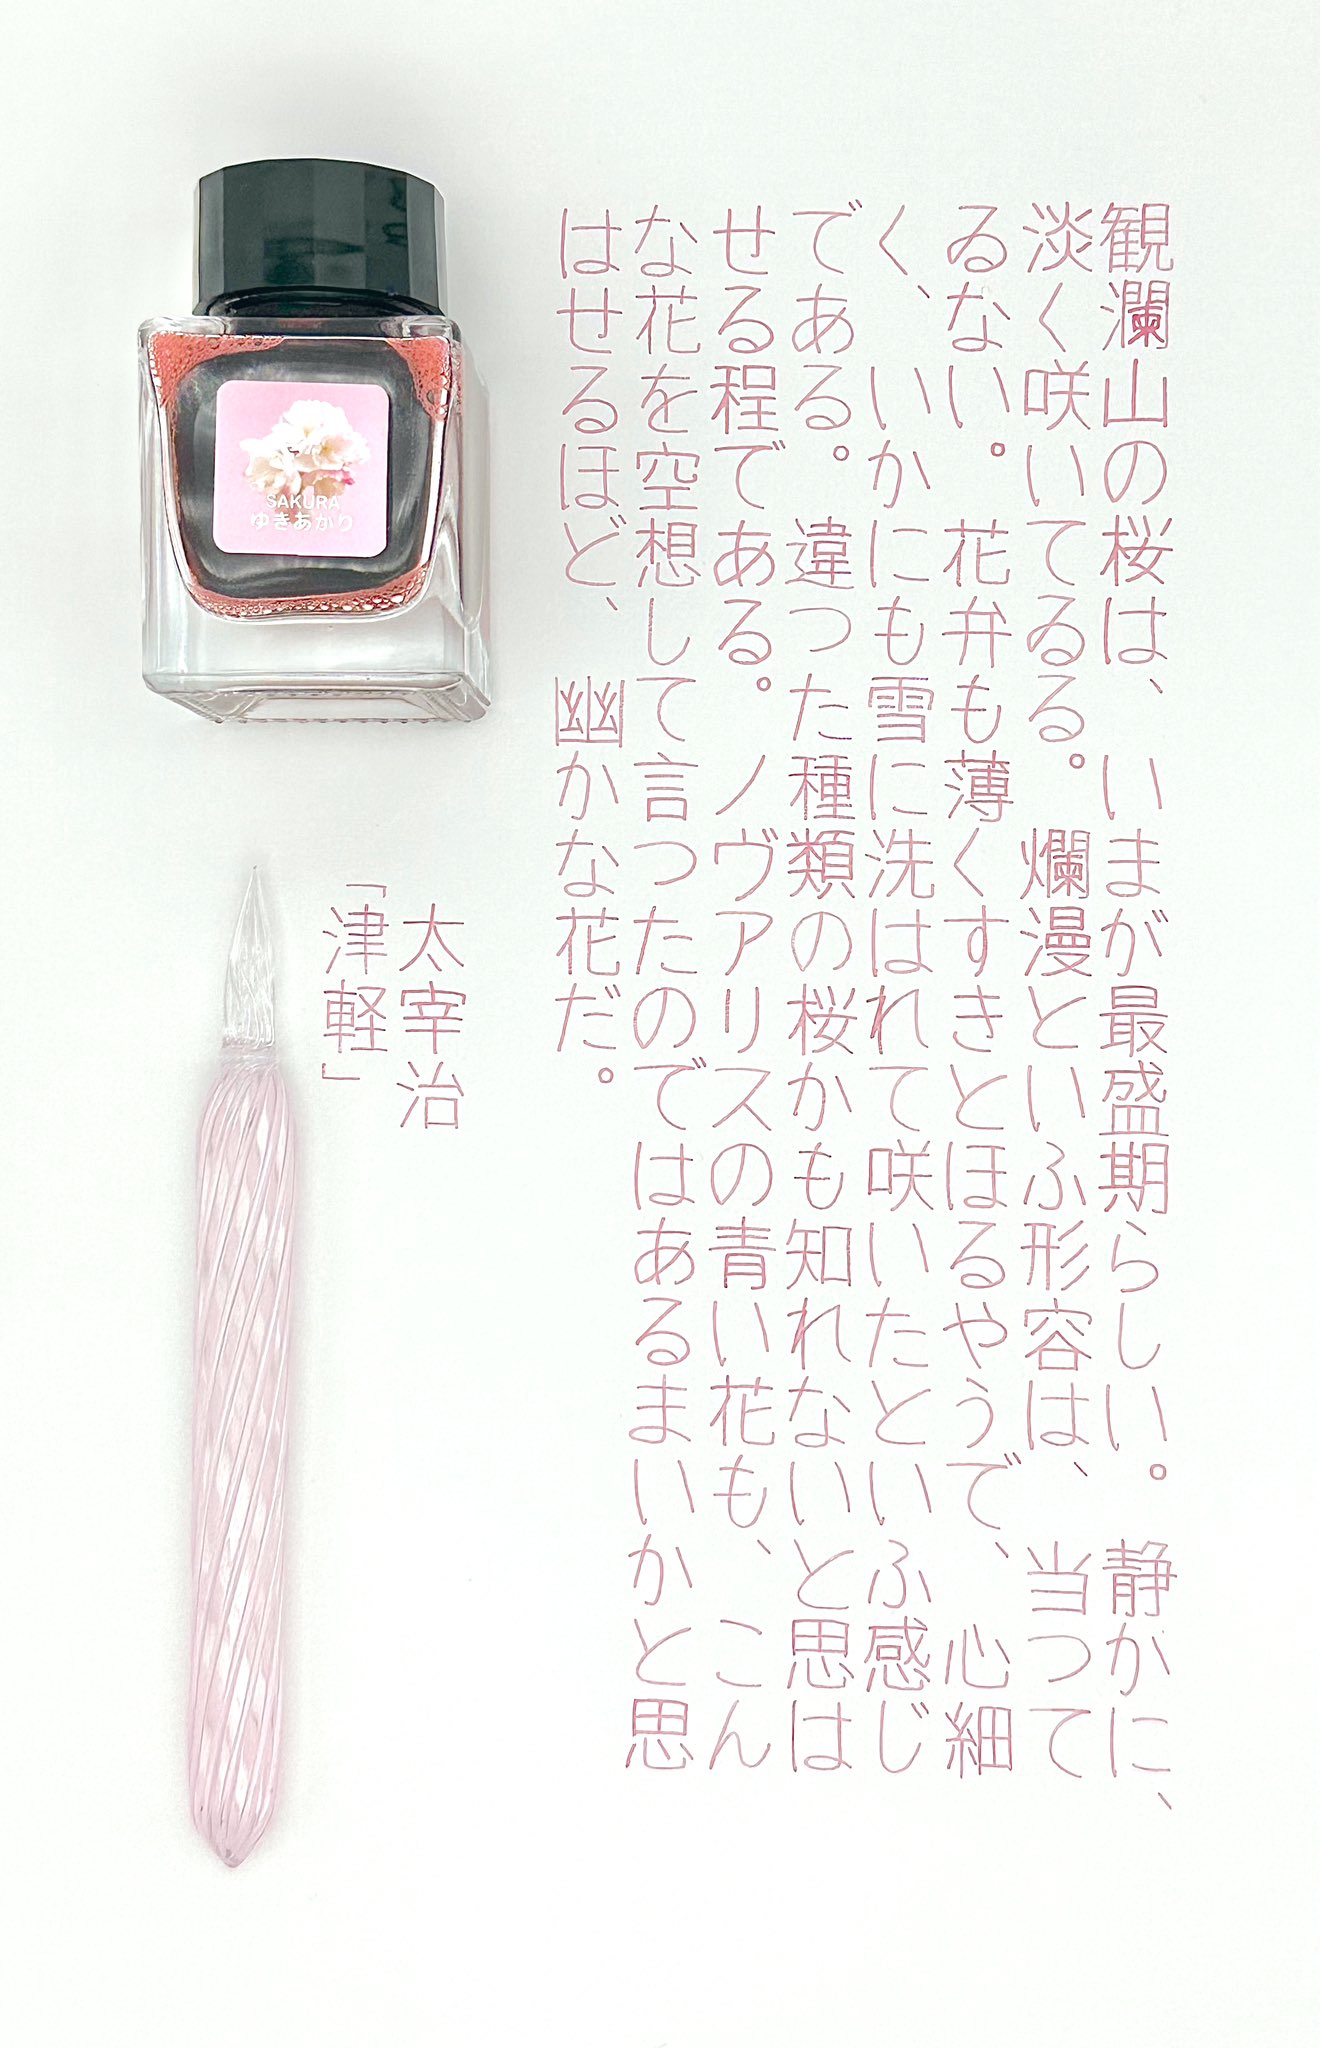 観瀾山の桜は、いまが最盛期らしい。静かに、
淡く咲いてゐる。爛漫といふ形容は、当つて
ゐない。花弁も薄くすきとほるやうで、心細
く、いかにも雪に洗はれて咲いたといふ感じ
である。違つた種類の桜かも知れないと思は
せる程である。ノヴアリスの青い花も、こん
な花を空想して言つたのではあるまいかと思
はせるほど、幽かな花だ。
太宰治
「津軽」
SAKURA
ゆきあかり